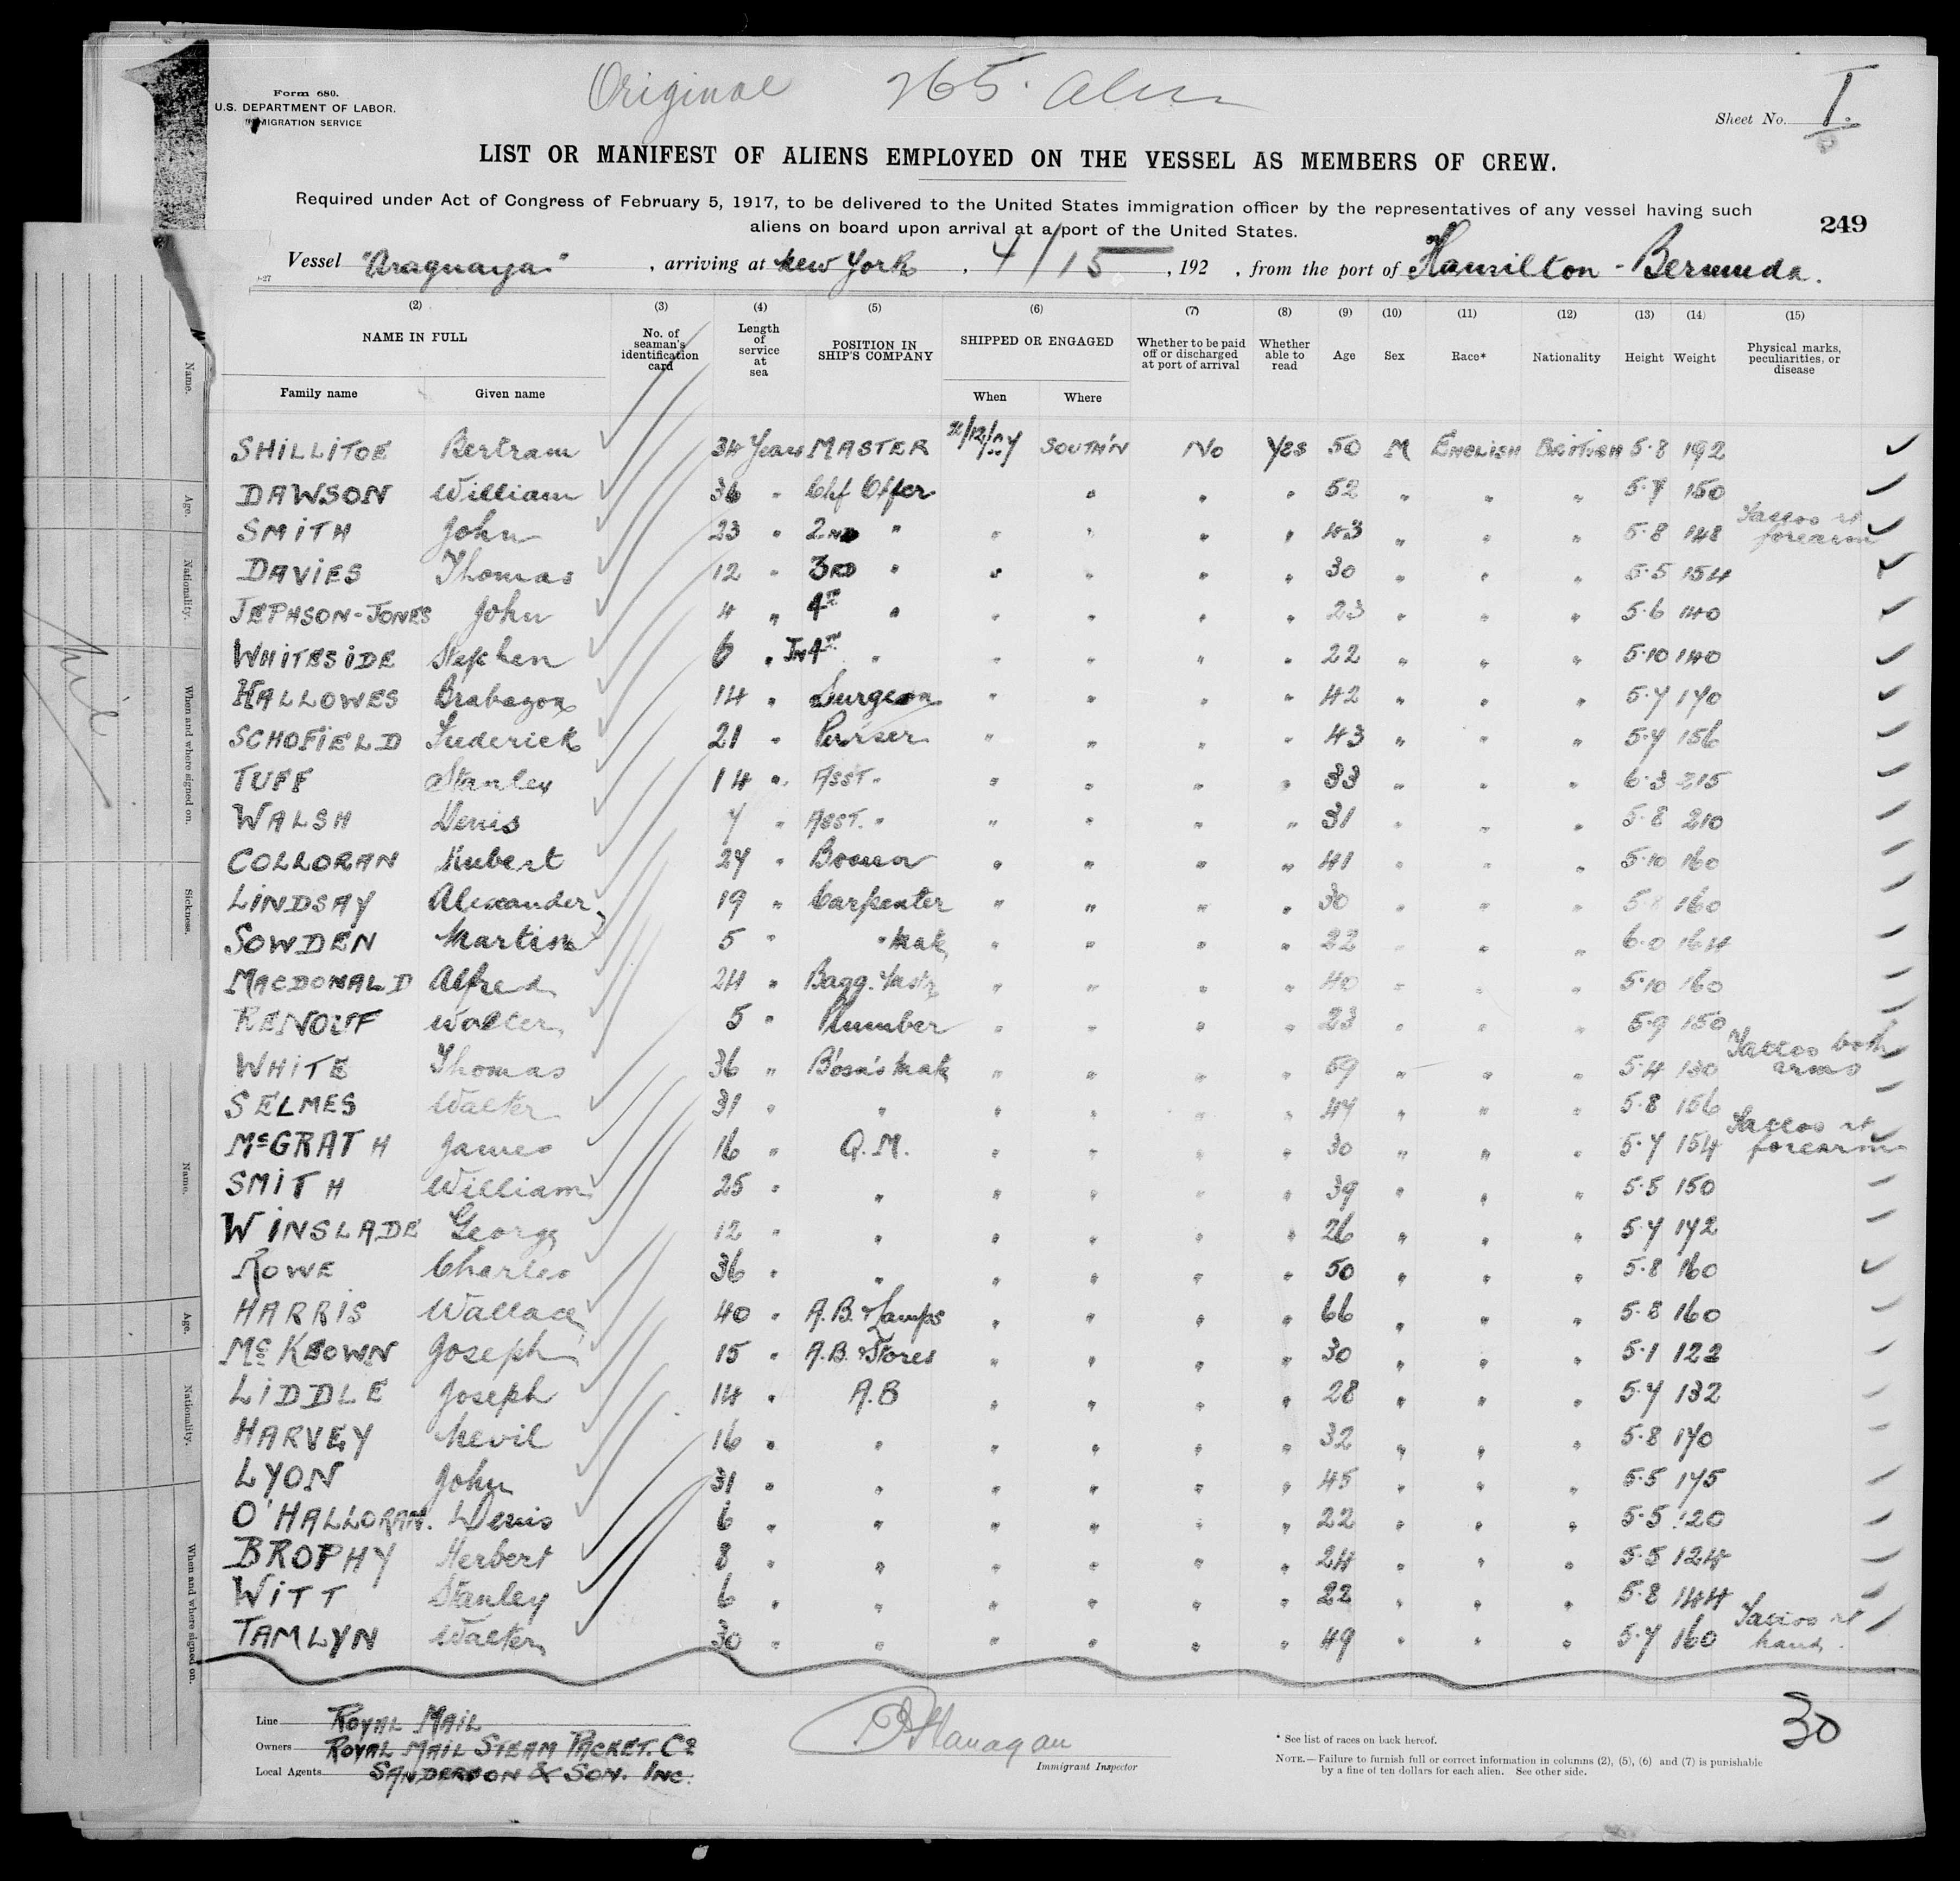 Original 265. Alien
Form 680.
U.S. DEPARTMENT OF LABOR.
IMMIGRATION SERVICE
Sheet No. I.
LIST OR MANIFEST OF ALIENS EMPLOYED ON THE VESSEL AS MEMBERS OF CREW.
Required under Act of Congress of February 5, 1917, to be delivered to the United States immigration officer by the representatives of any vessel having such
aliens on board upon arrival at a port of the United States.
249
Vessel "Araguaya", arriving at New York, 4/15, 192 , from the port of Hamilton - Bermuda.
(2) (3) (4) (5) (6) (7) (8) (9) (10) (11) (12) (13) (14) (15)
NAME IN FULL No. of seaman's identification card Length of service at sea POSITION IN SHIP'S COMPANY SHIPPED OR ENGAGED Whether to be paid off or discharged at port of arrival Whether able to read Age Sex Race* Nationality Height Weight Physical marks, peculiarities, or disease
Family name Given name When Where
SHILLITOE Bertram 34 Years MASTER SOUTH'N No Yes 50 M ENGLISH BRITISH 5·8 192
DAWSON William 36 " Chf Offer " " " 52 " " " 5·7 150
SMITH John 23 " 2ND " " " " " 43 " " " 5·8 148 Tattoo rt forearm
DAVIES Thomas 12 " 3RD " " " " " 30 " " " 5·5 154
JEPHSON-JONES John 4 " 4TH " " " " " 23 " " " 5·6 140
WHITESIDE Stephen 6 " Jn 4TH " " " " " 22 " " " 5·10 140
HALLOWES Brabazon 14 " Surgeon " " " " 42 " " " 5·7 170
SCHOFIELD Frederick 21 " Purser " " " " 43 " " " 5·7 156
TUFF Stanley 14 " ASST. " " " " " 33 " " " 6·3 215
WALSH Denis 7 " ASST. " " " " " 31 " " " 5·8 210
COLLORAN Hubert 27 " Bosun " " " " 41 " " " 5·10 160
LINDSAY Alexander 19 " Carpenter " " " " 30 " " " 5·8 160
SOWDEN Martin 5 " " Mate " " " " 22 " " " 6·0 164
MACDONALD Alfred 24 " Bagg. Mastr " " " " 40 " " " 5·10 160
RENOUF Walter 5 " Plumber " " " " 23 " " " 5·9 150
WHITE Thomas 36 " B'osn's Mate " " " " 59 " " " 5·4 130 Tattoo both arms
SELMES Walter 31 " " " " " " 47 " " " 5·8 156
McGRATH James 16 " Q.M. " " " " 30 " " " 5·7 154 Tattoo rt forearm
SMITH William 25 " " " " " " 39 " " " 5·5 150
WINSLADE George 12 " " " " " " 26 " " " 5·7 172
ROWE Charles 36 " " " " " " 50 " " " 5·8 160
HARRIS Wallace 40 " A.B. & Lamps " " " " 66 " " " 5·8 160
McKEOWN Joseph 15 " A.B. & Stores " " " " 30 " " " 5·1 122
LIDDLE Joseph 14 " A.B " " " " 28 " " " 5·7 132
HARVEY Nevil 16 " " " " " " 32 " " " 5·8 170
LYON John 31 " " " " " " 45 " " " 5·5 175
O'HALLORAN. Denis 6 " " " " " " 22 " " " 5·5 120
BROPHY Herbert 8 " " " " " " 24 " " " 5·5 124
WITT Stanley 6 " " " " " " 22 " " " 5·8 144
TAMLYN Walter 30 " " " " " " 49 " " " 5·7 160 Tattoo rt hand.
30
Line ROYAL MAIL
Owners ROYAL MAIL STEAM PACKET. Co
Local Agents SANDERSON & SON. INC.
Flanagan
Immigrant Inspector
* See list of races on back hereof.
NOTE.—Failure to furnish full or correct information in columns (2), (5), (6) and (7) is punishable
by a fine of ten dollars for each alien. See other side.
Name.
Age.
Nationality.
When and where signed on.
Sickness.
Name.
Age.
Nationality.
When and where signed on.